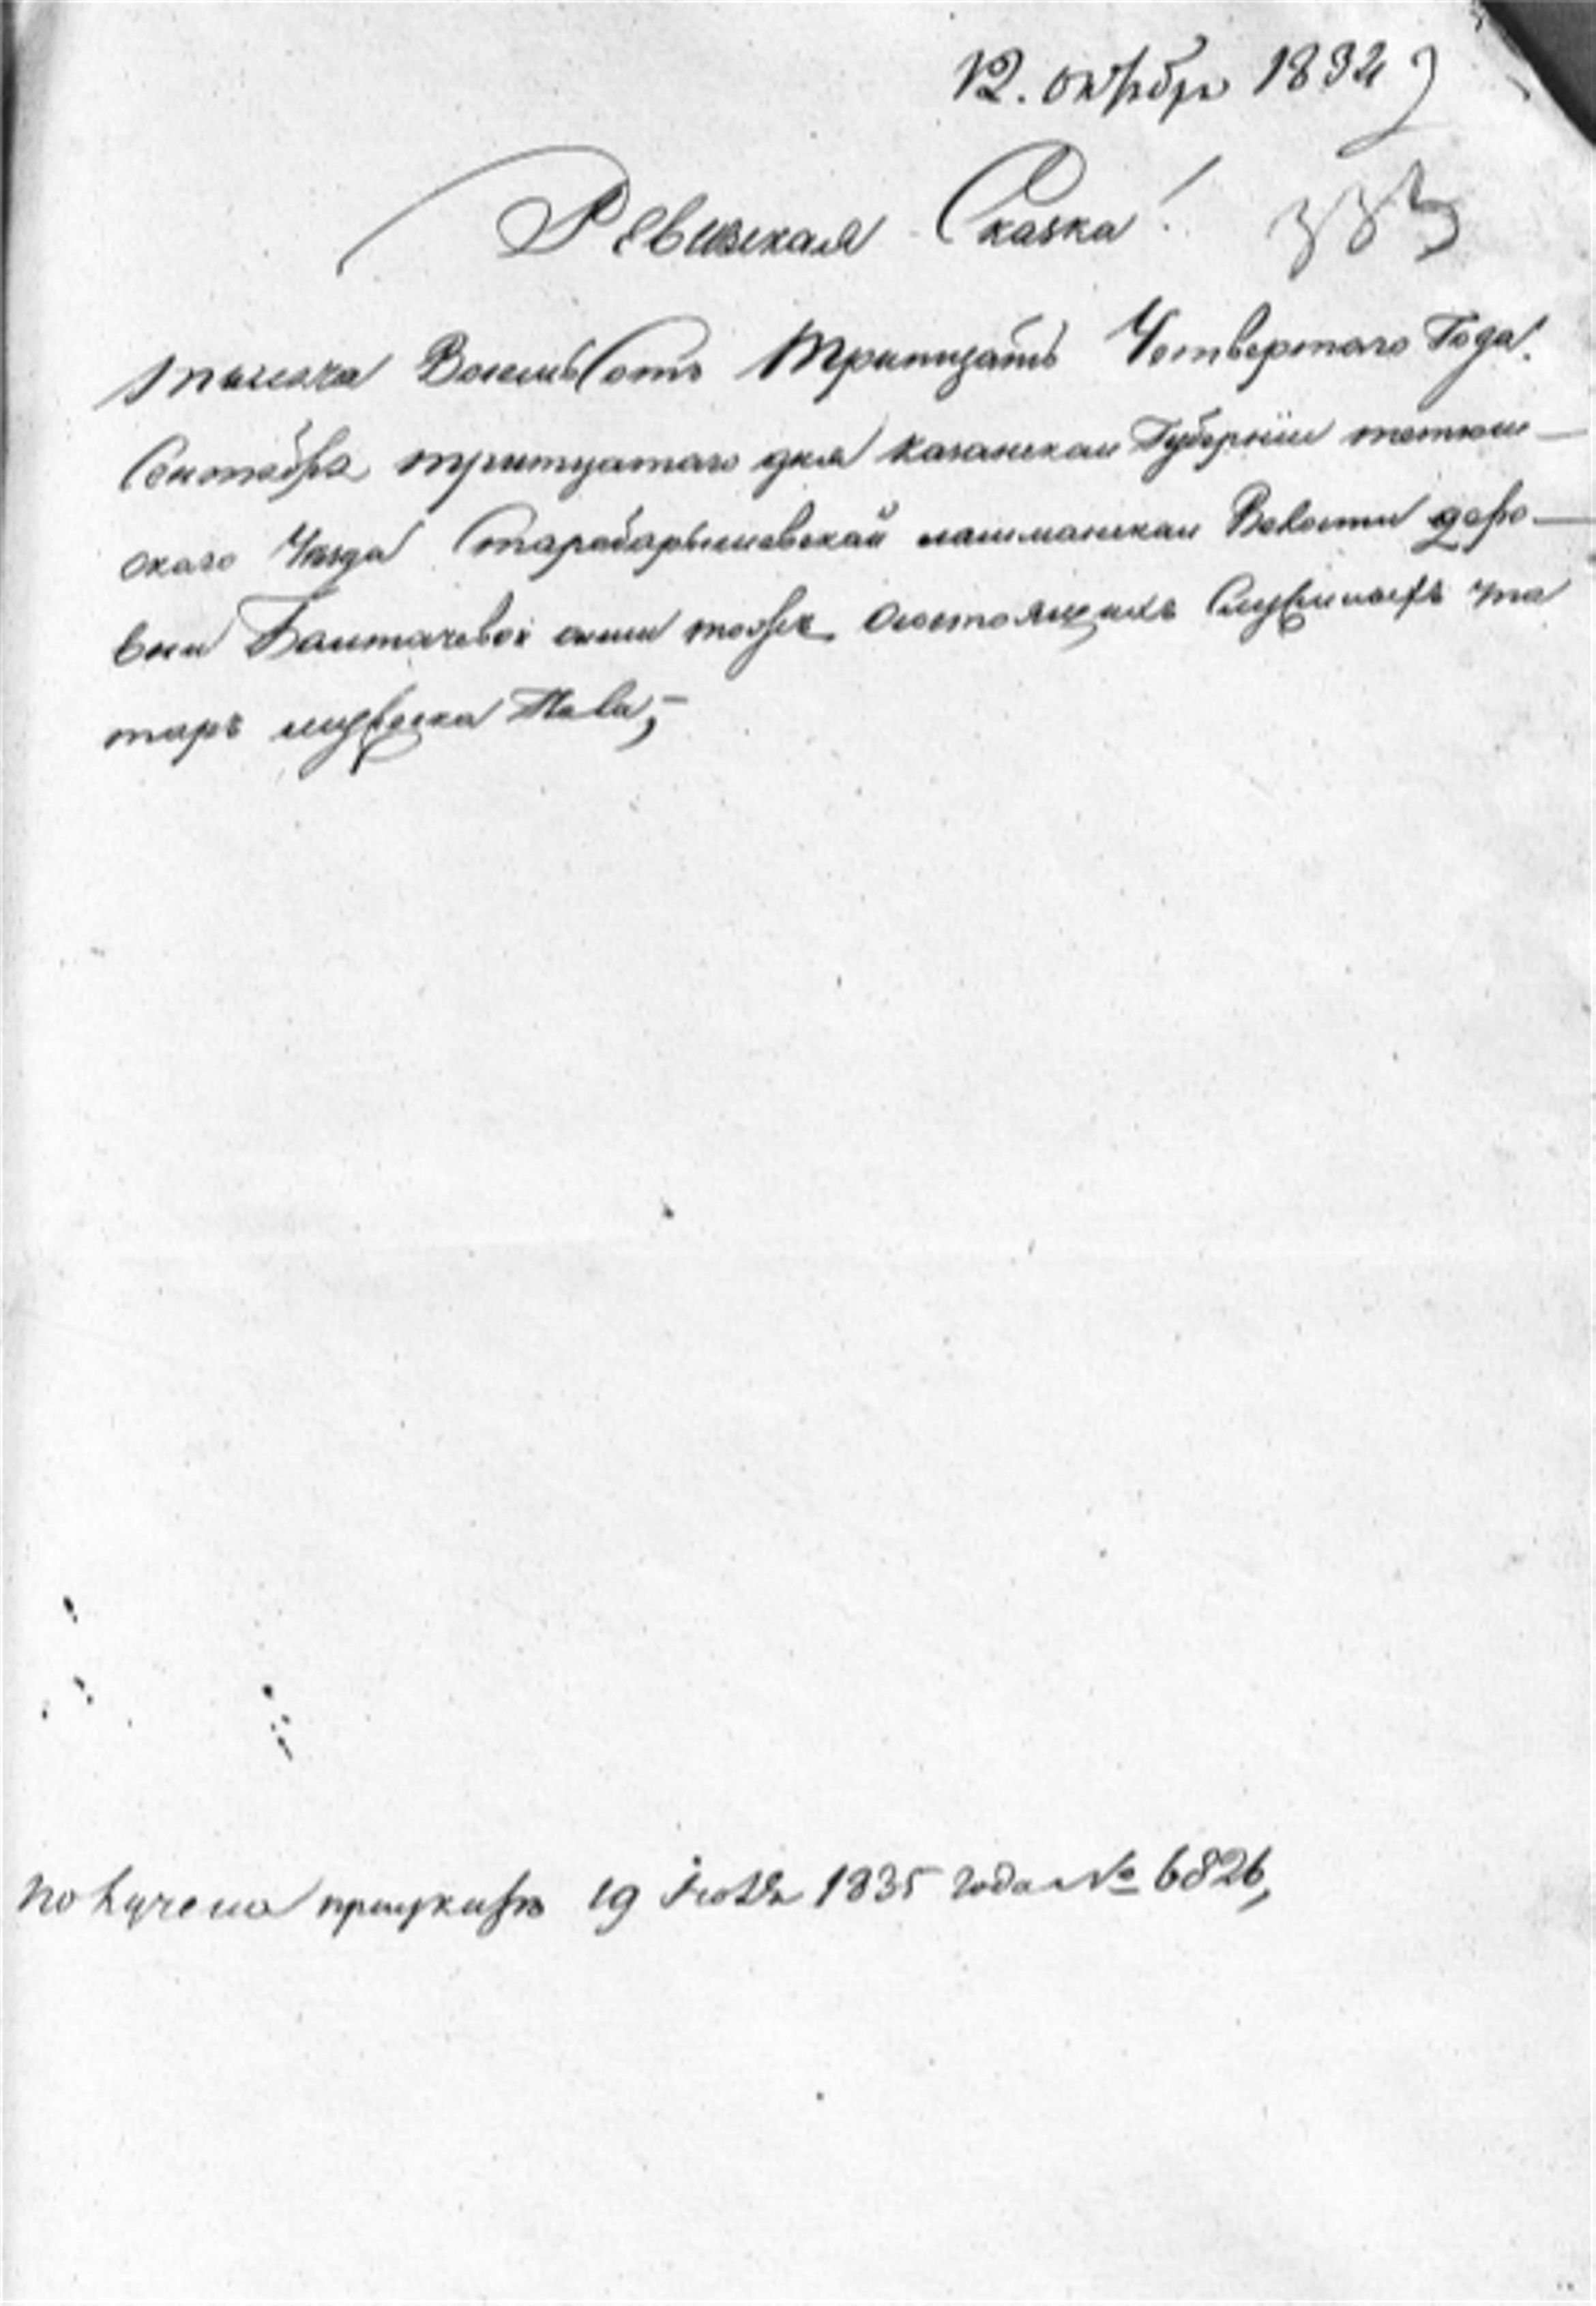 12. октября 1834
Ревизская Сказка!
383
тысяча Восемьсотъ Тритцать Четвертаго Года
Сентября тритцатаго дня Казанскаи Губернїи тетюш-
скаго Уезда Старобарышевской лашманскаи Волости дере-
вни Бантачевой состоящихъ Служилыхъ та
таръ мужеска Пола,-
Получена приуказе 19 Июля 1835 года № 6826,